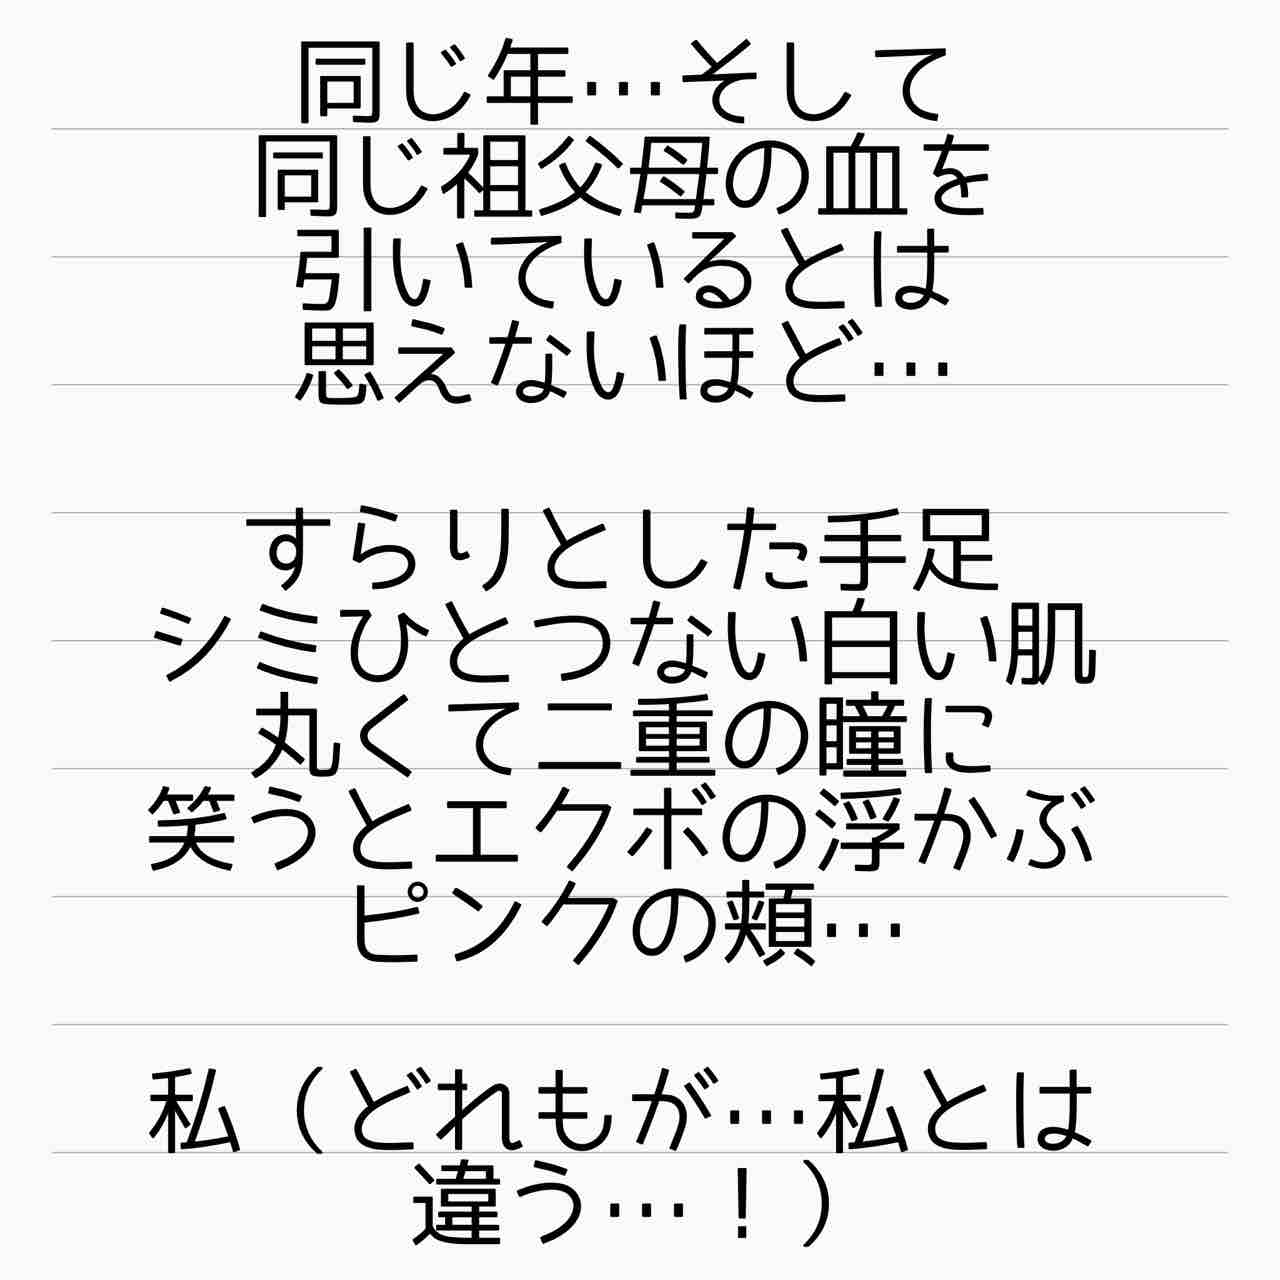 同じ年…そして
同じ祖父母の血を
引いているとは
思えないほど…
すらりとした手足
シミひとつない白い肌
丸くて二重の瞳に
笑うとエクボの浮かぶ
ピンクの頬…
私（どれもが…私とは
違う…！）